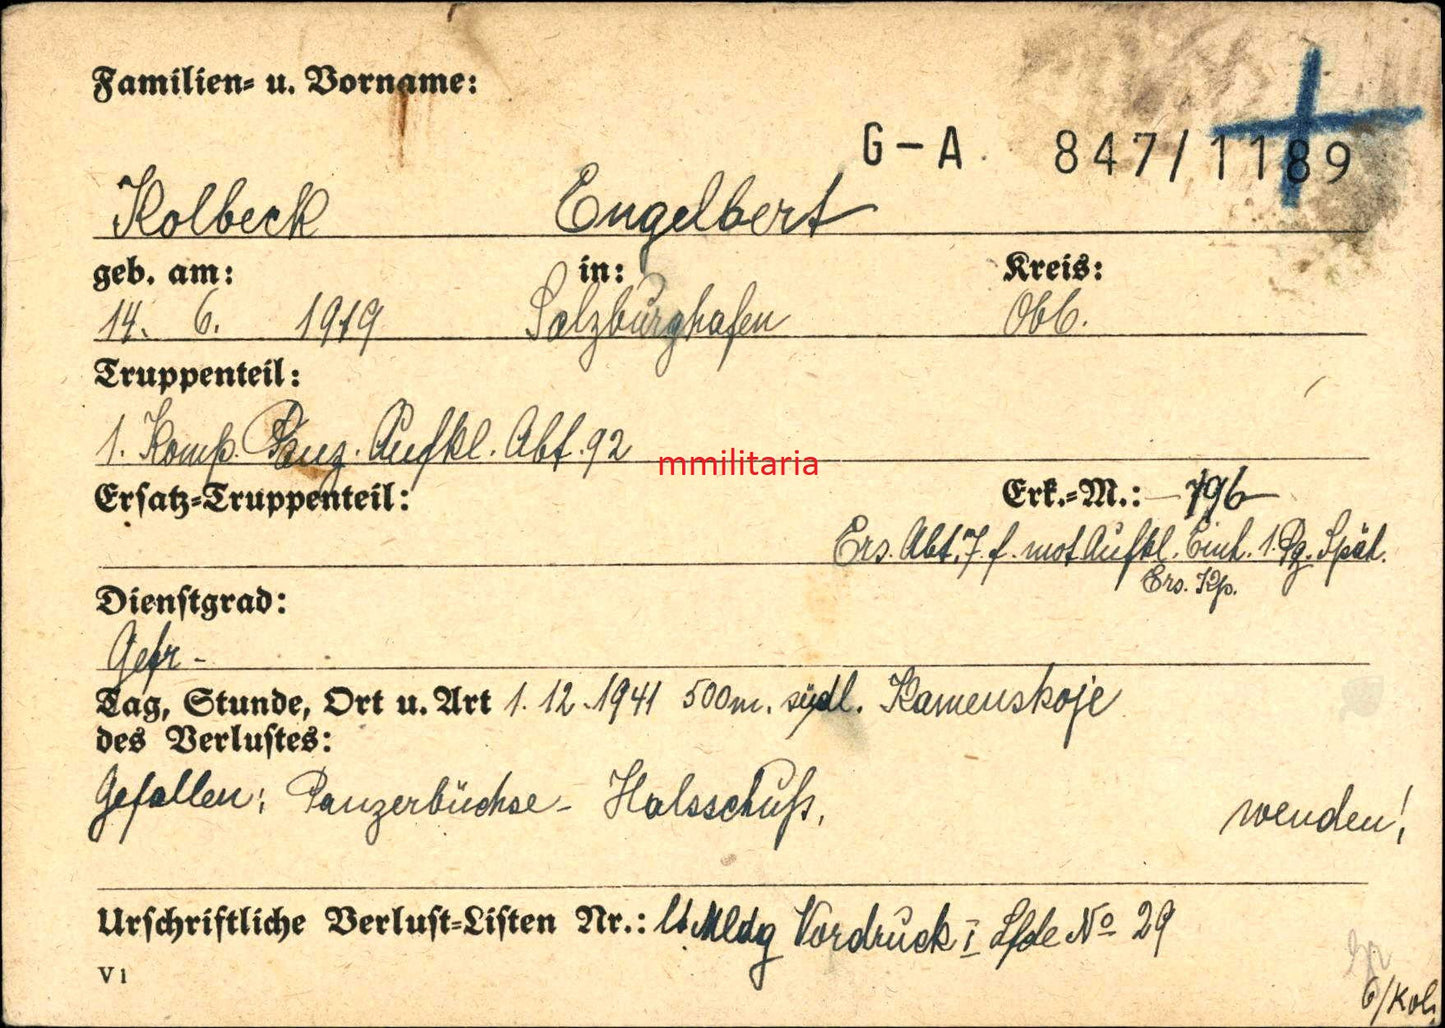 Familien- u. Vorname:
G-A 847/1189
Kolbeck Engelbert
geb. am: in: Kreis:
14. 6. 1919 Salzburghafen Obb.
Truppenteil:
1. Komp. Panz. Aufkl. Abt. 92
mmilitaria
Ersatz-Truppenteil: Erk.-M.: - 796 -
Ers. Abt. 7 f. mot Aufkl. Einh. 1. Pz. Späh.
Ers. Kp.
Dienstgrad:
Gefr -
Tag, Stunde, Ort u. Art 1. 12. 1941 500m. südl. Kamenskoje
des Verlustes:
Gefallen; Panzerbüchse - Halsschuß,
wenden!
Urschriftliche Verlust-Listen Nr.: lt Mldg Vordruck I Lfde No 29
V 1
6/Kol.